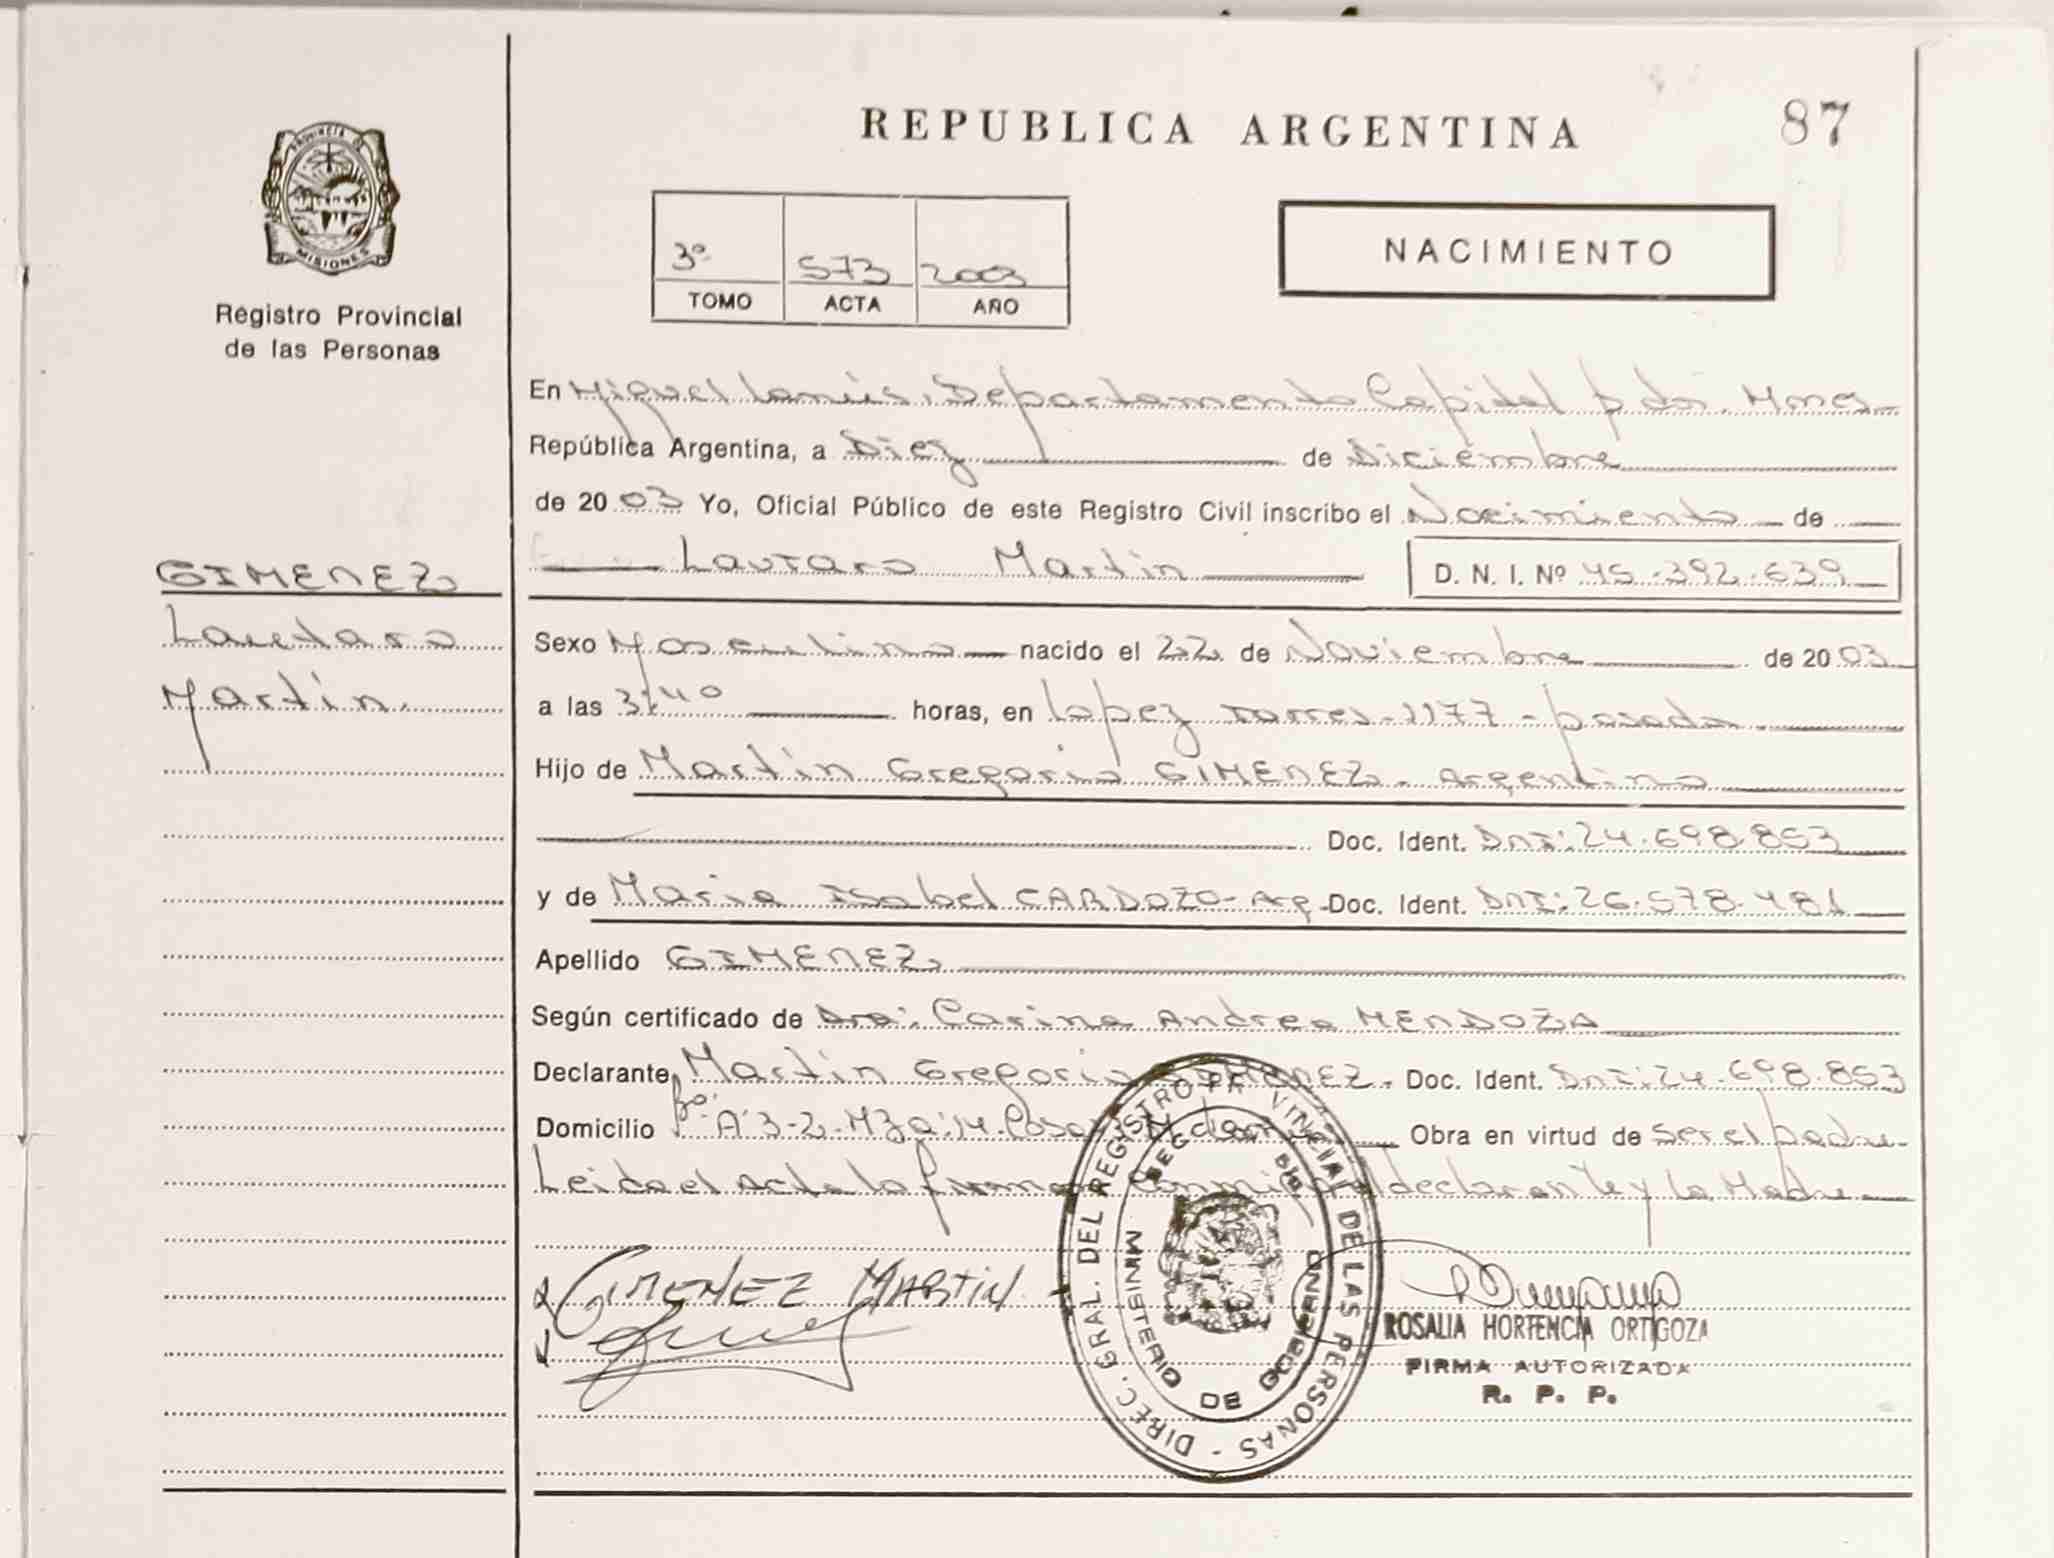 REPUBLICA ARGENTINA
87
PROVINCIA DE
MISIONES
Registro Provincial
de las Personas
3º 573 2003
TOMO ACTA AÑO
NACIMIENTO
En Miguel Lanús, Departamento Capital Mnes
República Argentina, a Diez de Diciembre
de 2003 Yo, Oficial Público de este Registro Civil inscribo el Nacimiento de
Lautaro Martin D. N. I. Nº 45.392.639
GIMENEZ
Lautaro
Martin.
Sexo Masculino nacido el 22 de Noviembre de 2003
a las 3:40 horas, en Lopez Torres-1177-posadas
Hijo de Martin Gregorio GIMENEZ - Argentino
Doc. Ident. DNI:24.698.853
y de Maria Isabel CARDOZO-Arg-Doc. Ident. DNI:26.578.481
Apellido GIMENEZ
Según certificado de Dra: Carina Andrea MENDOZA
Declarante Martin Gregorio GIMENEZ. Doc. Ident. DNI:24.698.853
Domicilio Bº: A'3-2-Mza:14-Casa Obra en virtud de ser el padre
Leida el Acta la firman conmigo el declarante y la Madre
GIMENEZ MARTIN
ROSALIA HORTENCIA ORTIGOZA
FIRMA AUTORIZADA
R. P. P.
DIREC. GRAL. DEL REGISTRO PROVINCIAL DE LAS PERSONAS -
MINISTERIO DE GOBIERNO